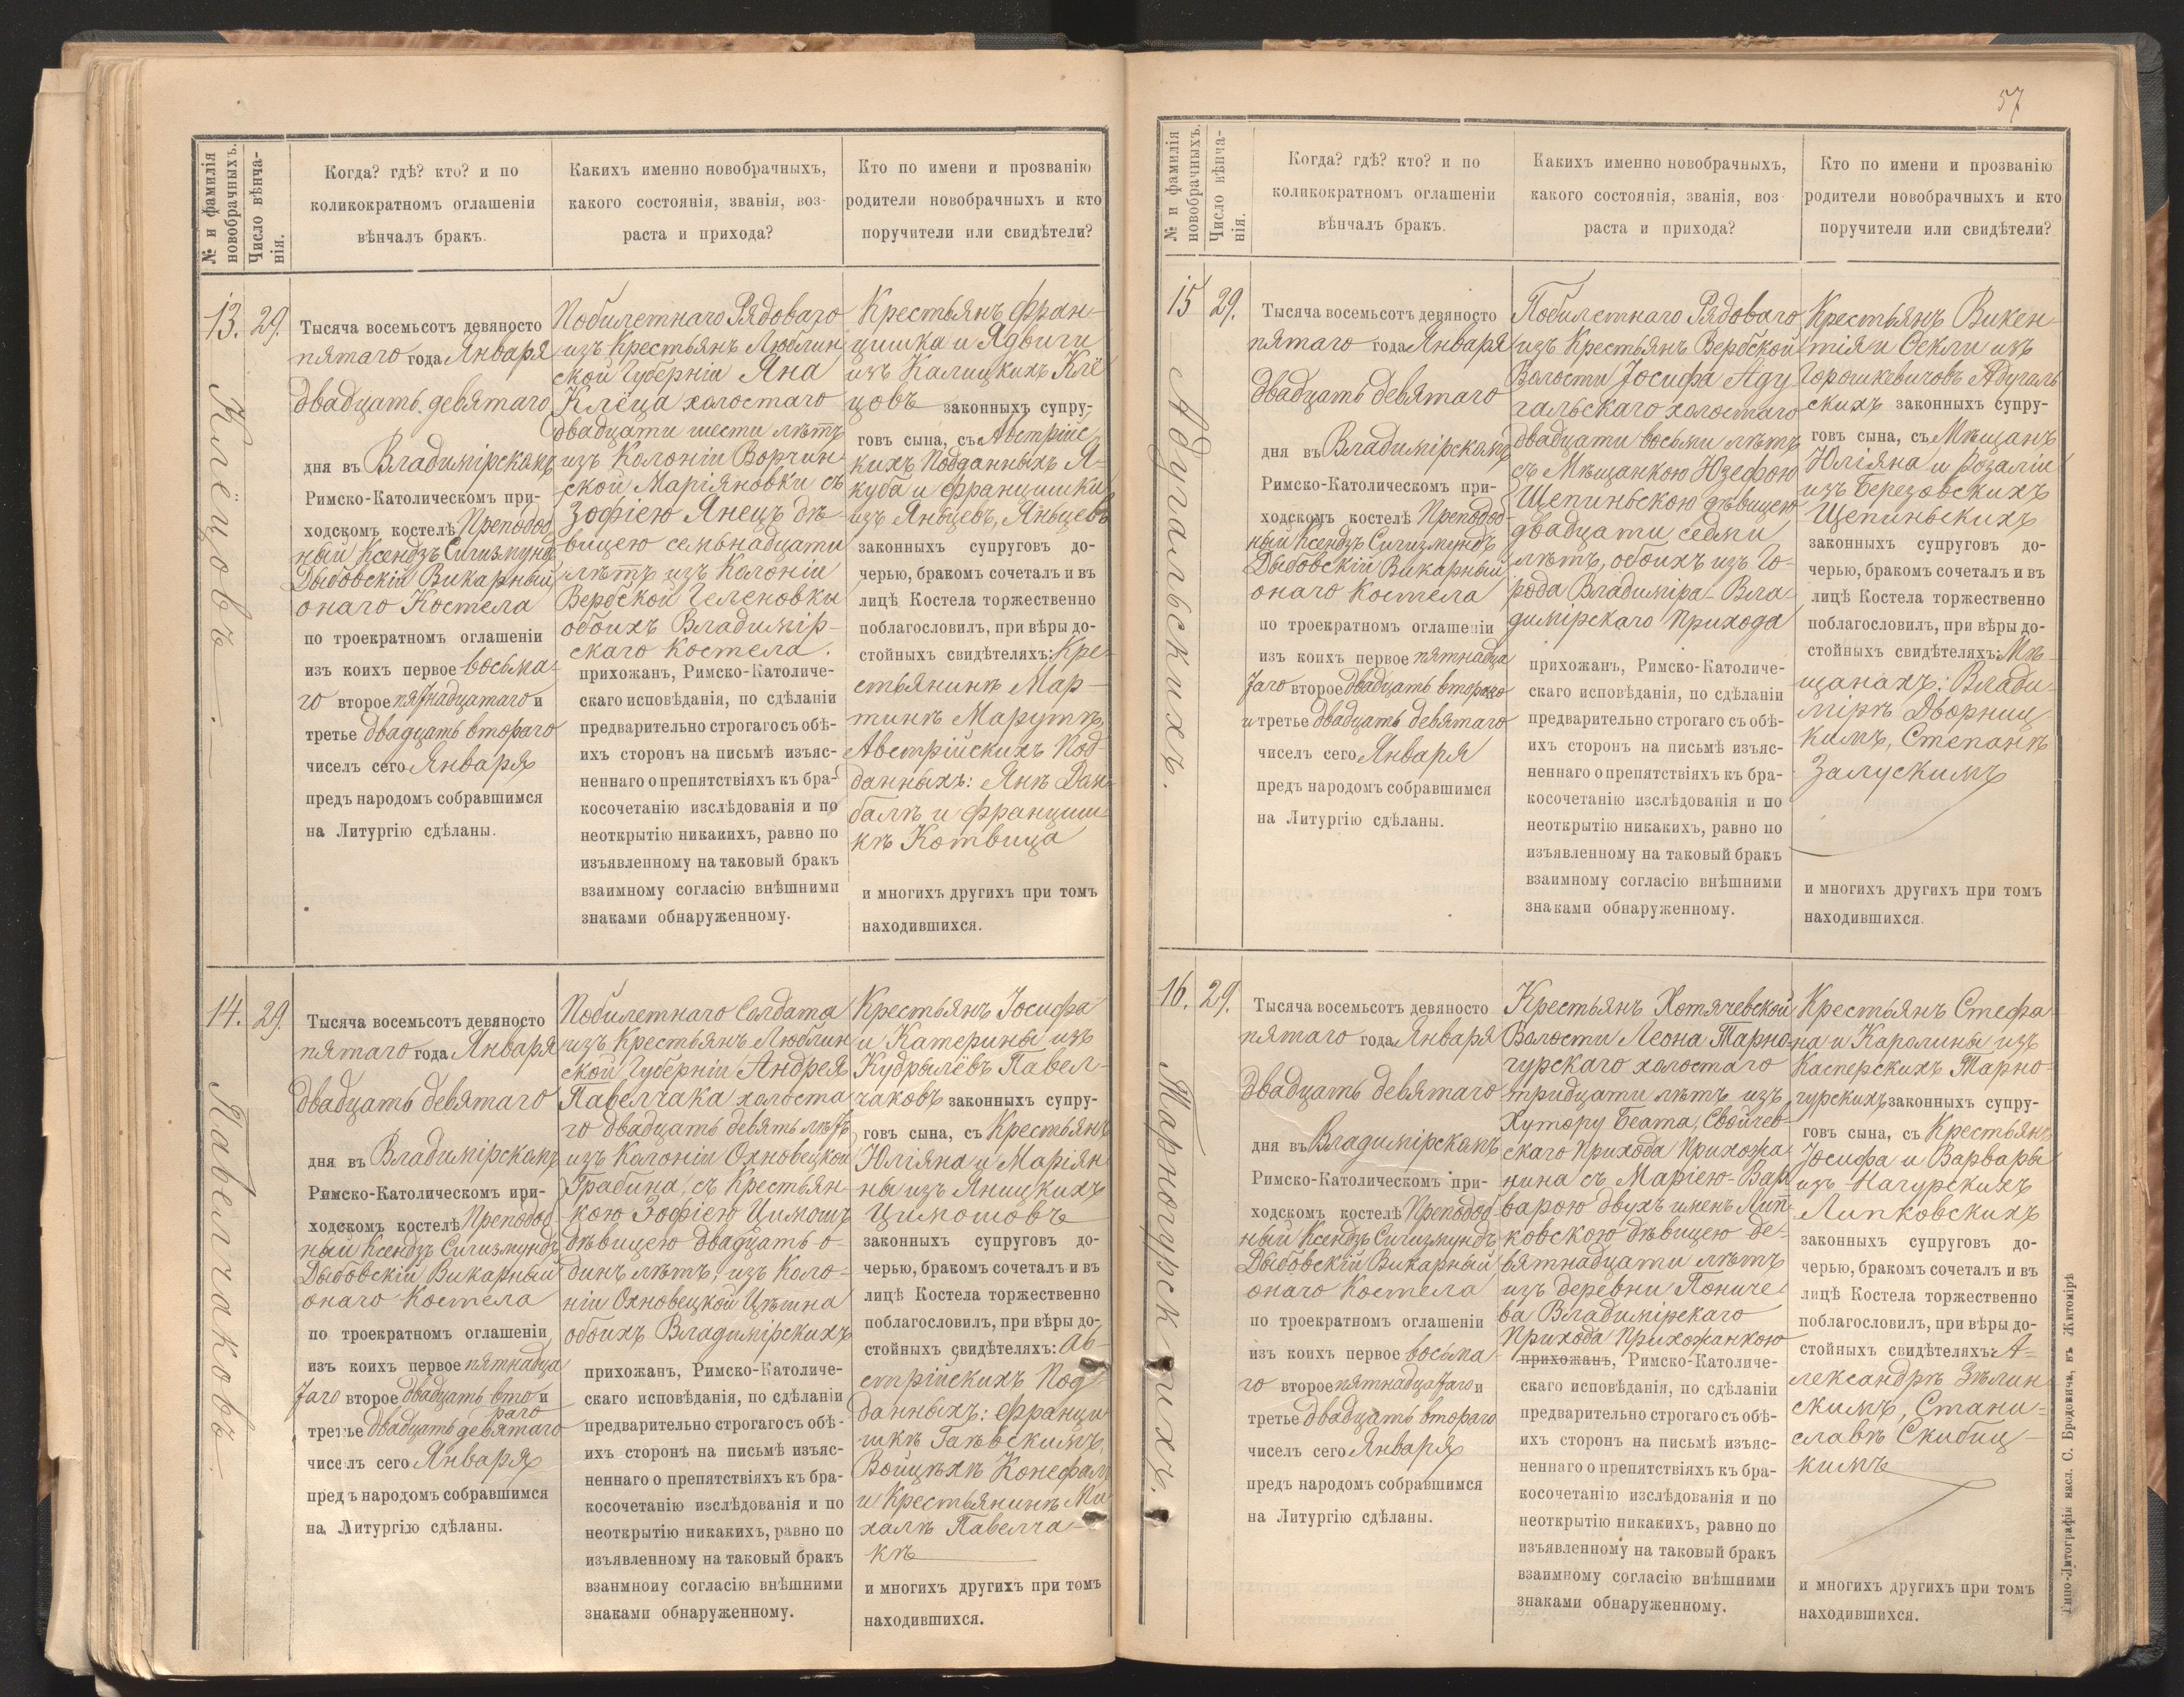 № и фамилія
новобрачныхъ.
Число вѣнча-
нія.
Когда? гдѣ? кто? и по
коликократномъ оглашеніи
вѣнчалъ бракъ.
Какихъ именно новобрачныхъ,
какого состоянія, званія, воз-
раста и прихода?
Кто по имени и прозванію
родители новобрачныхъ и кто
поручители или свидѣтели?
13.
Клёцовъ.
29.
Тысяча восемьсотъ девяносто
пятаго года Января
двадцать девятаго
дня въ Владимірскомъ
Римско-Католическомъ при-
ходскомъ костелѣ Преподоб
ный Ксендзъ Сигизмундъ
Дыбовскій Викарный
онаго Костела
по троекратномъ оглашеніи
изъ коихъ первое восьма-
го второе пятнадцатаго и
третье двадцать втораго
чиселъ сего Января
предъ народомъ собравшимся
на Литургію сдѣланы.
Побилетнаго Рядоваго
изъ Крестьянъ Люблин
ской Губерніи Яна
Клёца холостаго
двадцати шести лѣтъ
изъ Колоніи Ворчин-
ской Маріяновки съ
Зофіею Янецъ дѣ-
вицею семьнадцати
лѣтъ изъ Колоніи
Вербской Геленовки
обоихъ Владимір-
скаго Костела.
прихожанъ, Римско-Католиче-
скаго исповѣданія, по сдѣланіи
предварительно строгаго съ обѣ-
ихъ сторонъ на письмѣ изъяс-
неннаго о препятствіяхъ къ бра-
косочетанію изслѣдованія и по
неоткрытію никакихъ, равно по
изъявленному на таковый бракъ
взаимному согласію внѣшними
знаками обнаруженному.
Крестьянъ Фран-
цишка и Ядвиги
изъ Калицкихъ Клё
цовъ законныхъ супру-
говъ сына, съ Австрійс
кихъ Подданныхъ Я-
куба и Францишки
изъ Яньцевъ, Яньцевъ
законныхъ супруговъ до-
черью, бракомъ сочеталъ и въ
лицѣ Костела торжественно
поблагословилъ, при вѣры до-
стойныхъ свидѣтеляхъ: Кре-
стьянинѣ Мар-
тинѣ Марутѣ,
Австрійскихъ Под-
данныхъ: Янѣ Дан-
балѣ и Францыш-
кѣ Котвица
и многихъ другихъ при томъ
находившихся.
14.
Павелчаковъ
29.
Тысяча восемьсотъ девяносто
пятаго года Января
двадцать девятаго
дня въ Владимірскомъ
Римско-Католическомъ при-
ходскомъ костелѣ Преподоб
ный Ксендзъ Сигизмундъ
Дыбовскій Викарный
онаго Костела
по троекратномъ оглашеніи
изъ коихъ первое пятнадца
таго второе двадцать вто и
раго
третье двадцать девятаго
чиселъ сего Января
предъ народомъ собравшимся
на Литургію сдѣланы.
Побилетнаго Солдата
изъ Крестьянъ Люблин
ской Губерніи Андрея
Павелчака холоста
го двадцать девять лѣтъ
изъ Колоніи Охновецкой
Грабина, съ Крестьян-
кою Зофіею Цимошъ
дѣвицею двадцать о-
динъ лѣтъ, изъ Коло-
ніи Охновецкой Цѣтна
обоихъ Владимірскихъ
прихожанъ, Римско-Католиче-
скаго исповѣданія, по сдѣланіи
предварительно строгаго съ обѣ-
ихъ сторонъ на письмѣ изъяс-
неннаго о препятствіяхъ къ бра-
косочетанію изслѣдованія и по
неоткрытію никакихъ, равно по
изъявленному на таковый бракъ
взаимному согласію внѣшними
знаками обнаруженному.
Крестьянъ Іосифа
и Катерины изъ
Кудрылёвъ Павел-
чаковъ законныхъ супру-
говъ сына, съ Крестьянъ
Юліяна и Маріян
ны изъ Яницкихъ
Цимошовъ
законныхъ супруговъ до-
черью, бракомъ сочеталъ и въ
лицѣ Костела торжественно
поблагословилъ, при вѣры до-
стойныхъ свидѣтеляхъ: Ав-
стрійскихъ Под
данныхъ: Франци
шкѣ Гаѣвскимъ,
Войцѣхѣ Конефал
и Крестьянинѣ Ми
халѣ Павелча-
кѣ
и многихъ другихъ при томъ
находившихся.
57
№ и фамилія
новобрачныхъ.
Число вѣнча-
нія.
Когда? гдѣ? кто? и по
коликократномъ оглашеніи
вѣнчалъ бракъ.
Какихъ именно новобрачныхъ,
какого состоянія, званія, воз-
раста и прихода?
Кто по имени и прозванію
родители новобрачныхъ и кто
поручители или свидѣтели?
15
Адугальскихъ.
29.
Тысяча восемьсотъ девяносто
пятаго года Января
двадцать девятаго
дня въ Владимірскомъ
Римско-Католическомъ при-
ходскомъ костелѣ Преподоб-
ный Ксендзъ Сигизмундъ
Дыбовскій Викарный
онаго Костела
по троекратномъ оглашеніи
изъ коихъ первое пятнадца
таго второе двадцать второго
и третье двадцать девятаго
чиселъ сего Января
предъ народомъ собравшимся
на Литургію сдѣланы.
Побилетнаго Рядоваго
изъ Крестьянъ Вербской
Волости Іосифа Аду
гальскаго холостаго
двадцати восьми лѣтъ
съ Мѣщанкою Юзефою
Щепиньскою дѣвицею
двадцати седми
лѣтъ, обоихъ изъ Го-
рода Владиміра-Вла-
димірскаго Прихода
прихожанъ, Римско-Католиче-
скаго исповѣданія, по сдѣланіи
предварительно строгаго съ обѣ-
ихъ сторонъ на письмѣ изъяс-
неннаго о препятствіяхъ къ бра-
косочетанію изслѣдованія и по
неоткрытію никакихъ, равно по
изъявленному на таковый бракъ
взаимному согласію внѣшними
знаками обнаруженному.
Крестьянъ Викен-
тія и Текли изъ
Горошкевичовъ Адугаль
скихъ законныхъ супру-
говъ сына, съ Мѣщанъ
Юліяна и Розаліи
изъ Березовскихъ
Щепиньскихъ
законныхъ супруговъ до-
черью, бракомъ сочеталъ и въ
лицѣ Костела торжественно
поблагословилъ, при вѣры до-
стойныхъ свидѣтеляхъ: Мѣ-
щанахъ: Влади-
мірѣ Дворниц-
кимъ, Степанѣ
Залускимъ
и многихъ другихъ при томъ
находившихся.
16.
Тарногурскихъ.
29.
Тысяча восемьсотъ девяносто
пятаго года Января
двадцать девятаго
дня въ Владимірскомъ
Римско-Католическомъ при-
ходскомъ костелѣ Преподоб
ный Ксендзъ Сигизмундъ
Дыбовскій Викарный
онаго Костела
по троекратномъ оглашеніи
изъ коихъ первое восьма-
го второе пятнадцатаго и
третье двадцать втораго
чиселъ сего Января
предъ народомъ собравшимся
на Литургію сдѣланы.
Крестьянъ Хотячевской
Волости Леона Тарно-
гурскаго холостаго
тридцати лѣтъ изъ
Хутору Беата, Свойчев-
скаго Прихода Прихожа
нина съ Маріею-Вар
варою двухъ именъ Лип
ковскою дѣвицею де-
вятнадцати лѣтъ
изъ деревни Пониче
ва Владимірскаго
Прихода Прихожанкою
прихожанъ, Римско-Католиче-
скаго исповѣданія, по сдѣланіи
предварительно строгаго съ обѣ-
ихъ сторонъ на письмѣ изъяс-
неннаго о препятствіяхъ къ бра-
косочетанію изслѣдованія и по
неоткрытію никакихъ, равно по
изъявленному на таковый бракъ
взаимному согласію внѣшними
знаками обнаруженному.
Крестьянъ Стефа
на и Каролины изъ
Касперскихъ Тарно-
гурскихъ законныхъ супру-
говъ сына, съ Крестьянъ
Іосифа и Варвары
изъ Нагурскихъ
Липковскихъ
законныхъ супруговъ до-
черью, бракомъ сочеталъ и въ
лицѣ Костела торжественно
поблагословилъ, при вѣры до-
стойныхъ свидѣтеляхъ: А-
лександрѣ Зѣлин
скимъ, Стани-
славѣ Скибиц-
кимъ
и многихъ другихъ при томъ
находившихся.
Типо-Литографія насл. С. Бродовича, въ Житомірѣ